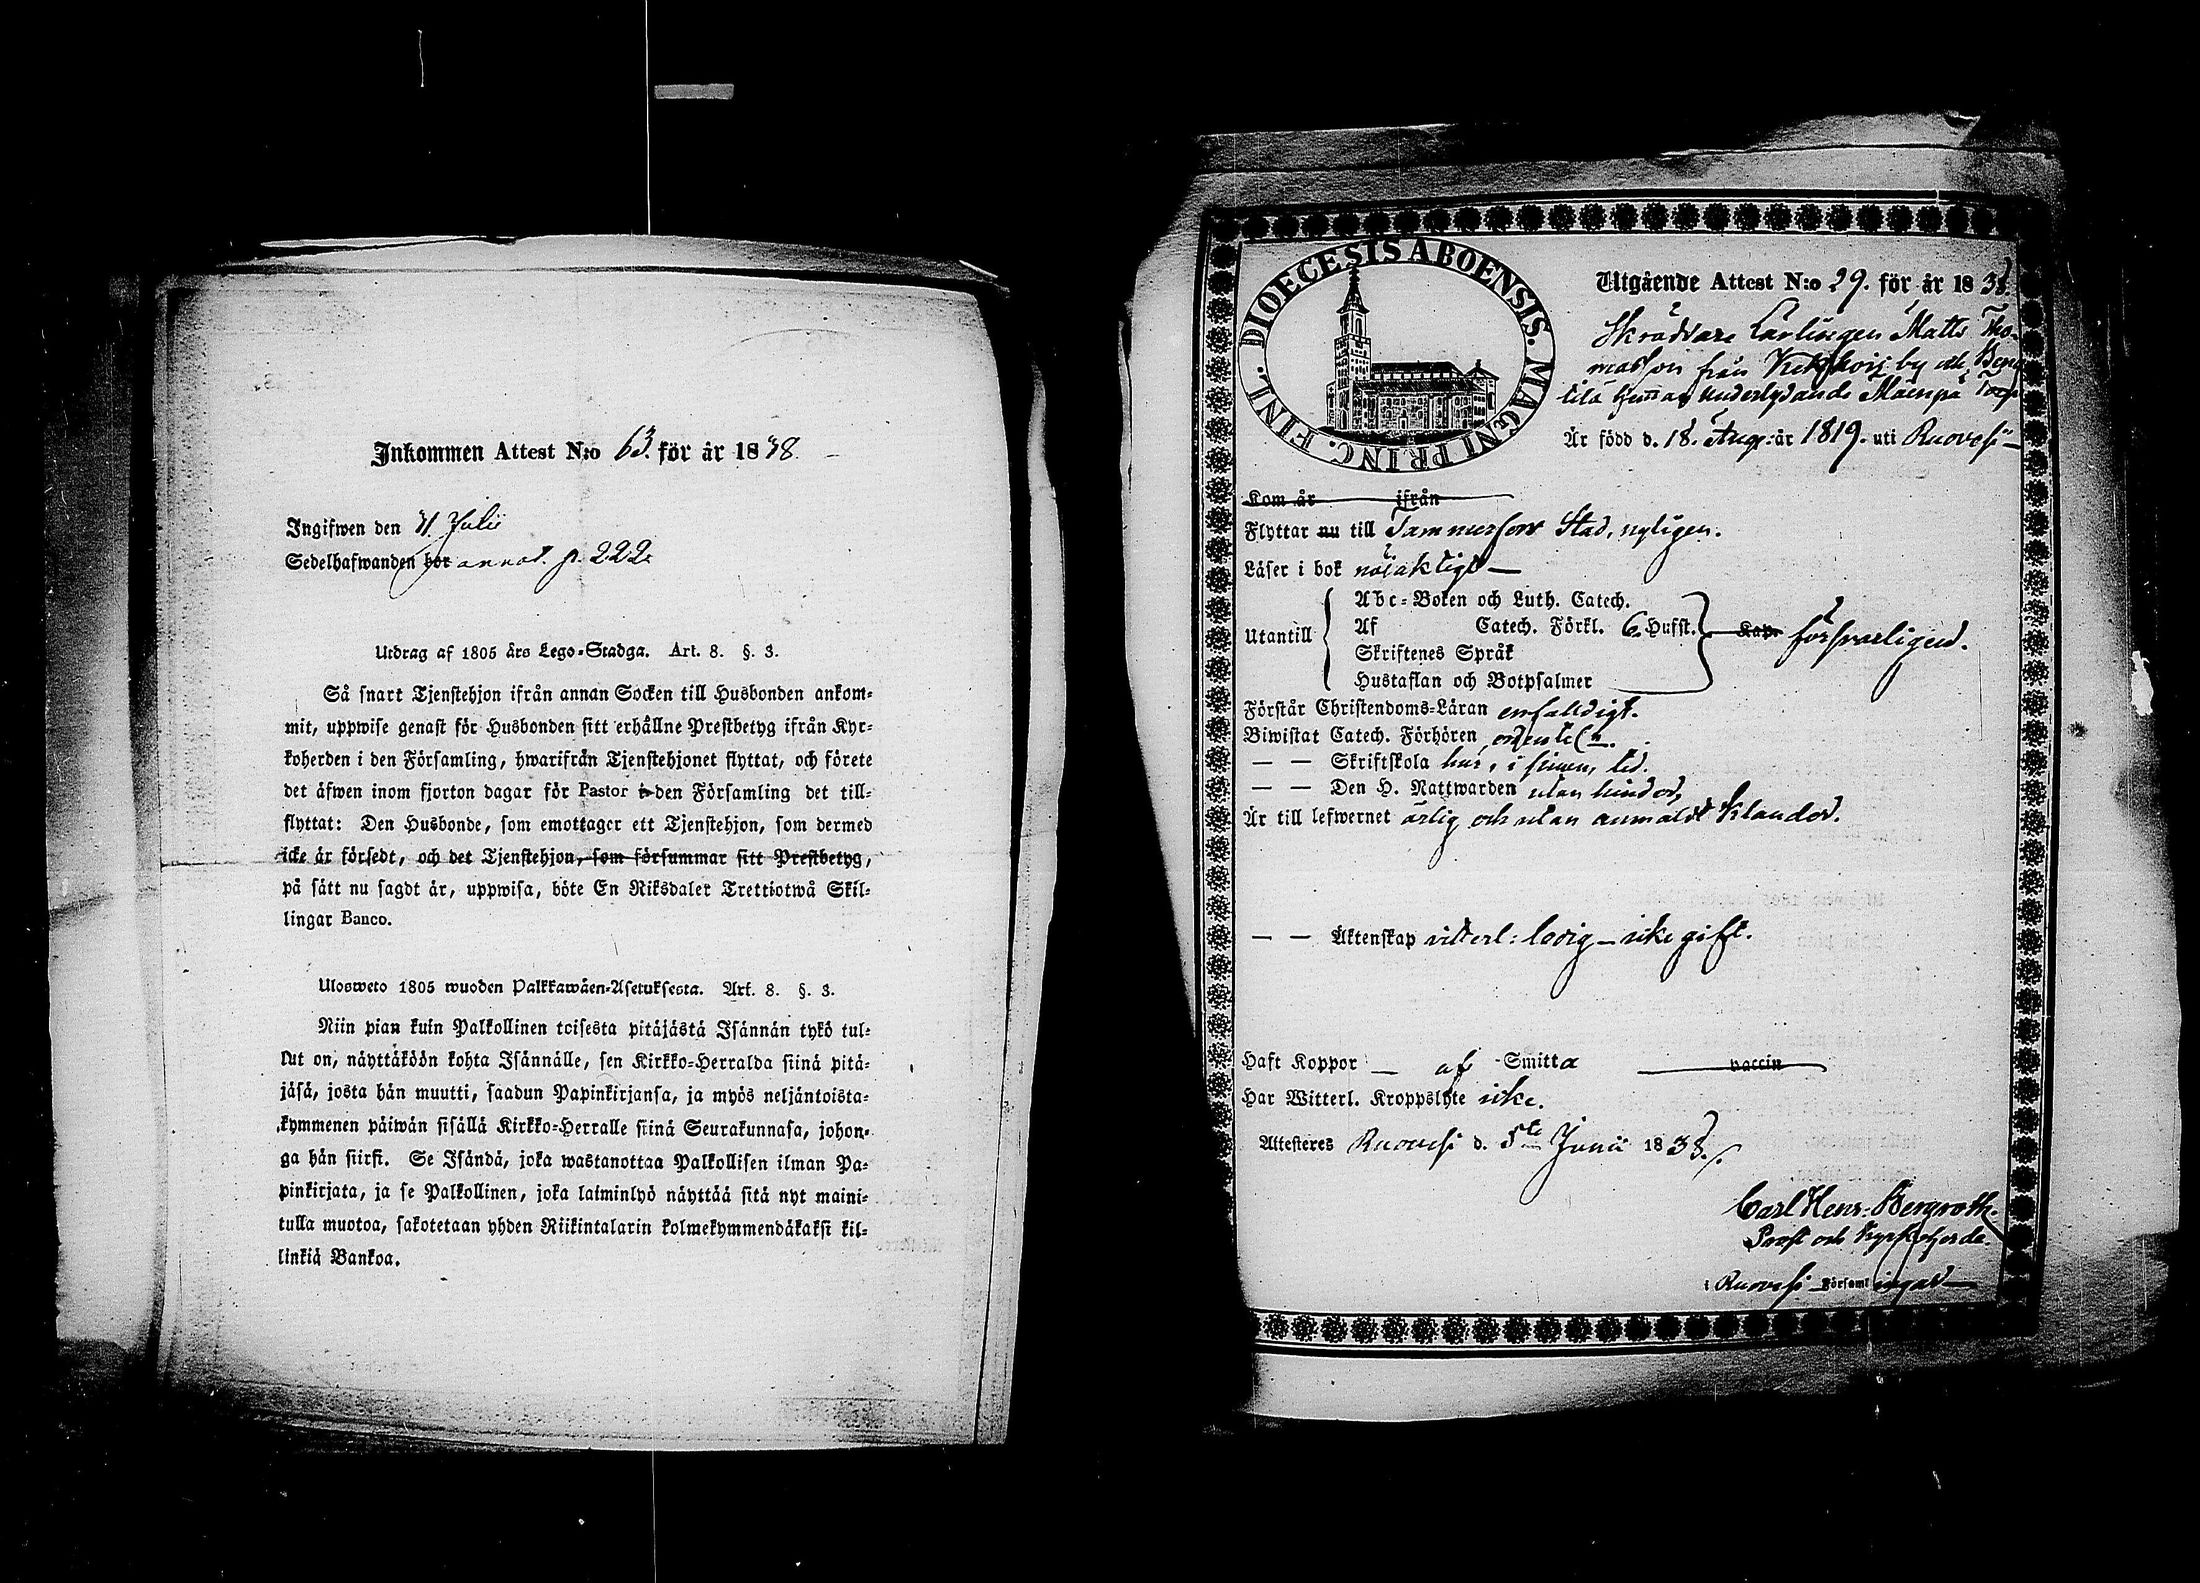 Inkommen Attest N:o 63. för år 1838
Ingifwen den 31 Julii
Sedelhafwanden bor annot. p. 222
Utdrag af 1805 års Lego-Stadga. Art. 8. §. 3.
Så snart Tjenstehjon ifrån annan Socken till Husbonden ankom-
mit, uppwise genast för Husbonden sitt erhållne Prestbetyg ifrån Kyr-
koherden i den Församling, hwarifrån Tjenstehjonet flyttat, och förete
det äfwen inom fjorton dagar för Pastor i den Församling det till-
flyttat: Den Husbonde, som emottager ett Tjenstehjon, som dermed
icke är försedt, och det Tjenstehjon, som försummar sitt Prestbetyg,
på sätt nu sagdt är, uppwisa, böte En Riksdaler Trettiotwå Skil-
lingar Banco.
Ulosweto 1805 wuoden Palkkawäen-Asetuksesta. Art. 8. §. 3.
Niin pian kuin Palkollinen toisesta pitäjästä Isännän tykö tul-
lut on, näyttäköön kohta Isännälle, sen Kirkko-Herralda siinä pitä-
jäsä, josta hän muutti, saadun Papinkirjansa, ja myös neljäntoista-
kymmenen päiwän sisällä Kirkko-Herralle siinä Seurakunnasa, johon-
ga hän siirsi. Se Isändä, joka wastanottaa Palkollisen ilman Pa-
pinkirjata, ja se Palkollinen, joka laiminlyö näyttää sitä nyt maini-
tulla muotoa, sakotetaan yhden Riikintalarin kolmekymmendäkaksi kil-
linkiä Bankoa.
DIOECESIS ABOENSIS. MAGNI PRINC. FINL.
Utgående Attest N:o 29. för år 1838
Skräddare Lärlingen Matts Tho-
masson från by
underlydande Mäenpä Torp
Är född d. 18. Aug: år 1819. uti Ruovesi
Kom år ifrån
Flyttar nu till Tammerfors Stad, nyligen.
Läser i bok nöjaktigt
Utantill
Abc-Boken och Luth. Catech.
Af Catech. Förkl. 6. Hufst. Kap. försvarligen.
Skriftenes Språk
Hustaflan och Botpsalmer
Förstår Christendoms-Läran enfaldigt.
Biwistat Catech. Förhören ordentel:n.
— — Skriftskola här, i sinom tid.
— — Den H. Nattwarden utan hinder,
Är till lefwernet ärlig och utan anmäldt klander.
— — Äktenskap vitterl: ledig - icke gift.
Haft Koppor — af Smitta vaccin
Har Witterl. Kroppslyte icke.
Attesteres Ruovesi d. 5te Junii 1838.
Carl Henr: Bergroth.
Prost och Kyrkoherde.
i Ruovesi Församlingar